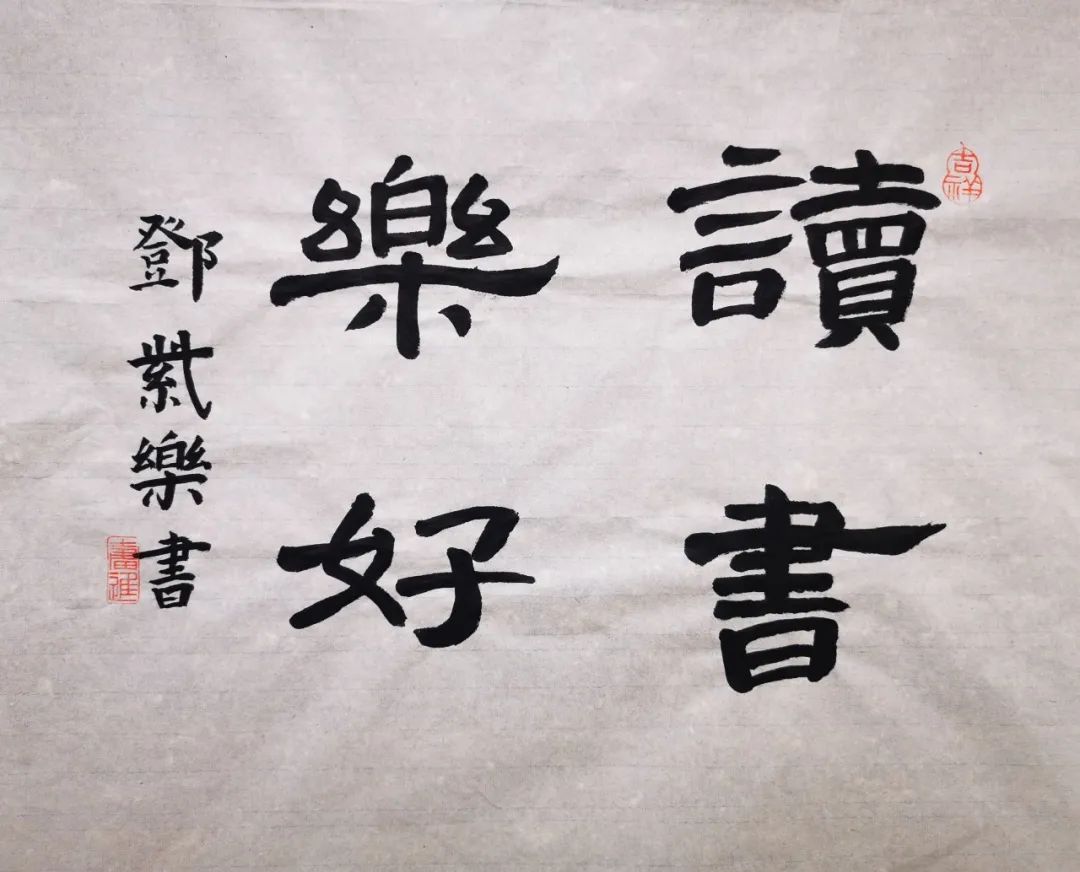 讀書
樂好
鄧紫樂書
吉祥